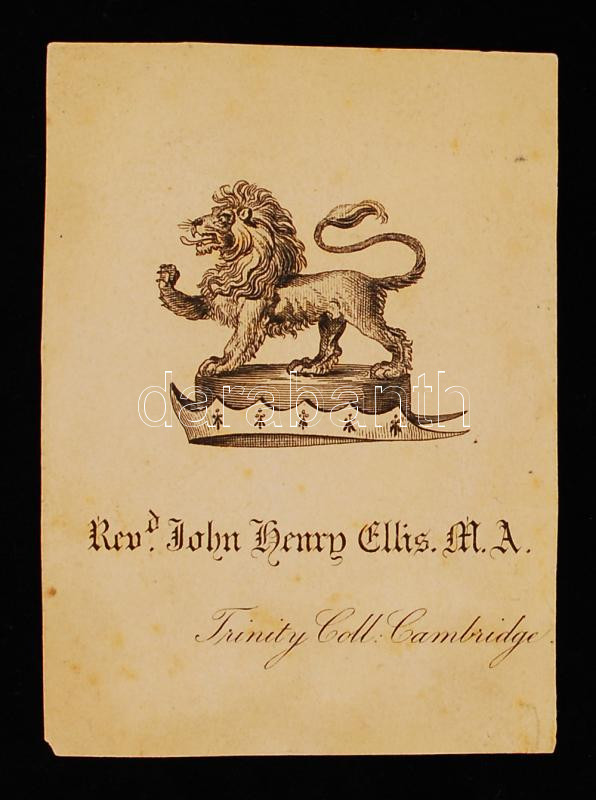 darabanth
Rev.ᵈ John Henry Ellis. M. A.
Trinity Coll: Cambridge.